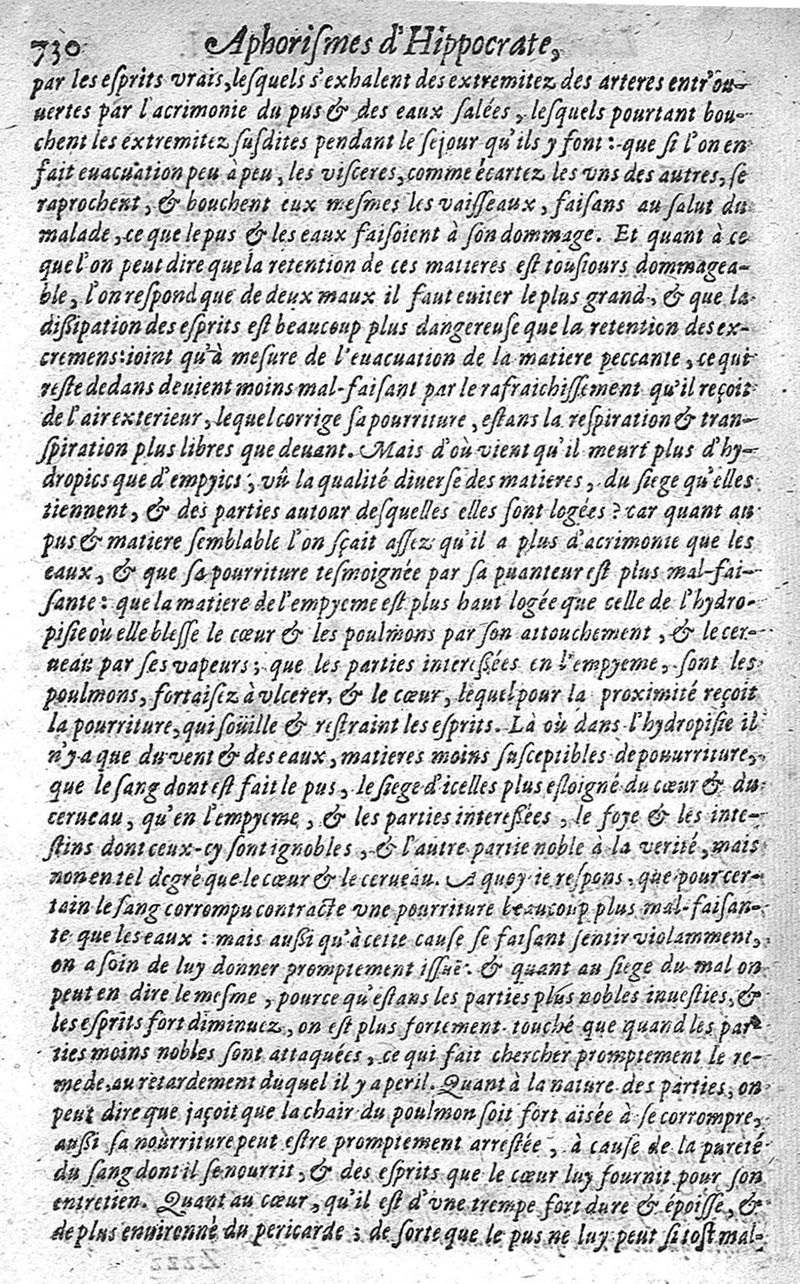 730 Aphoriſmes d'Hippocrate,
par les eſprits vrais, leſquels s'exhalent des extremitez des arteres entr'ou-
uertes par l'acrimonie du pus & des eaux ſalées, leſquels pourtant bou-
chent les extremitez ſuſdites pendant le ſejour qu'ils y font : que ſi l'on en
fait euacuation peu à peu, les viſceres, comme écartez les vns des autres, ſe
raprochent, & bouchent eux meſmes les vaiſſeaux, faiſans au ſalut du
malade, ce que le pus & les eaux faiſoient à ſon dommage. Et quant à ce
que l'on peut dire que la retention de ces matieres eſt touſiours dommagea-
ble, l'on reſpond que de deux maux il faut euiter le plus grand, & que la
diſſipation des eſprits eſt beaucoup plus dangereuſe que la retention des ex-
cremens: ioint qu'à meſure de l'euacuation de la matiere peccante, ce qui
reſte dedans deuient moins mal-faiſant par le rafraichiſſement qu'il reçoit
de l'air exterieur, lequel corrige ſa pourriture, eſtans la reſpiration & tran-
ſpiration plus libres que deuant. Mais d'où vient qu'il meurt plus d'hy-
dropics que d'empyics, vû la qualité diuerſe des matieres, du ſiege qu'elles
tiennent, & des parties autour deſquelles elles ſont logées ? car quant au
pus & matiere ſemblable l'on ſçait aſſez qu'il a plus d'acrimonie que les
eaux, & que ſa pourriture teſmoignée par ſa puanteur eſt plus mal-fai-
ſante : que la matiere de l'empyeme eſt plus haut logée que celle de l'hydro-
piſie où elle bleſſe le cœur & les poulmons par ſon attouchement, & le cer-
ueau par ſes vapeurs ; que les parties intereſſées en l'empyeme, ſont les
poulmons, fort aiſez à vlcerer, & le cœur, lequel pour la proximité reçoit
la pourriture, qui ſoüille & reſtraint les eſprits. Là où dans l'hydropiſie il
n'y a que du vent & des eaux, matieres moins ſuſceptibles de pouurriture,
que le ſang dont eſt fait le pus, le ſiege d'icelles plus eſloigné du cœur & du
cerueau, qu'en l'empyeme, & les parties intereſſées, le foye & les inte-
ſtins dont ceux-cy ſont ignobles, & l'autre partie noble à la verité, mais
non en tel degré que le cœur & le cerueau. A quoy ie reſpons, que pour cer-
tain le ſang corrompu contracte vne pourriture beaucoup plus mal-faiſan-
te que les eaux : mais auſſi qu'à cette cauſe ſe faiſant ſentir violamment,
on a ſoin de luy donner promptement iſſuë. & quant au ſiege du mal on
peut en dire le meſme, pource qu'eſtans les parties plus nobles inueſties, &
les eſprits fort diminuez, on eſt plus fortement touché que quand les par-
ties moins nobles ſont attaquées, ce qui fait chercher promptement le re-
mede, au retardement duquel il y a peril. Quant à la nature des parties, on
peut dire que jaçoit que la chair du poulmon ſoit fort aiſée à ſe corrompre,
auſſi ſa nourriture peut eſtre promptement arreſtée, à cauſe de la pureté
du ſang dont il ſe nourrit, & des eſprits que le cœur luy fournit pour ſon
entretien. Quant au cœur, qu'il eſt d'vne trempe fort dure & époiſſe, &
de plus enuironné du pericarde ; de ſorte que le pus ne luy peut ſi toſt mal-